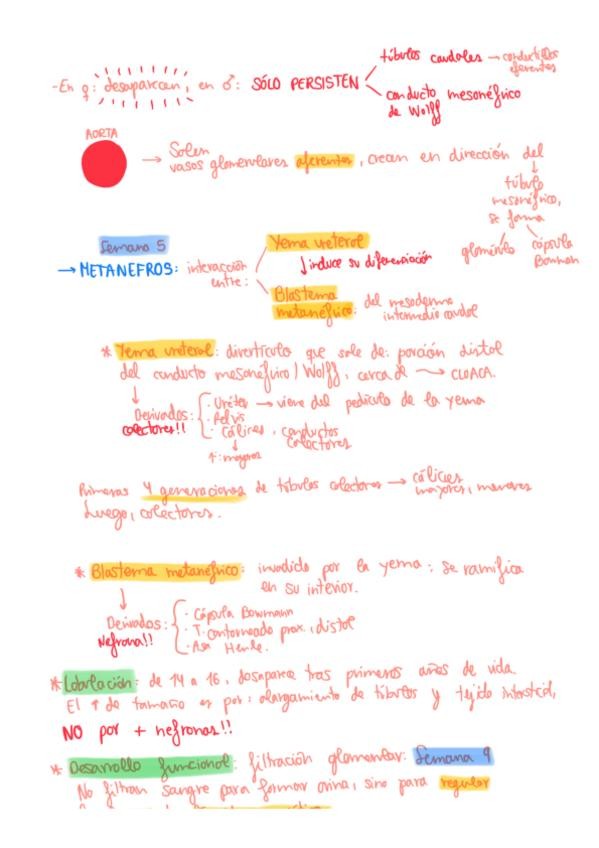 -En ♀: desaparecen, en ♂: SÓLO PERSISTEN
túbulos caudales → conductillos eferentes
conducto mesonéfrico de Wolff
AORTA
→ Salen vasos glomerulares aferentes, crecen en dirección del
↓
túbulo mesonéfrico, se forma
glomérulo
cápsula Bowman
Semana 5
→ METANEFROS: interacción entre:
Yema ureteral
↓ induce su diferenciación
Blastema metanéfrico: del mesodermo intermedio caudal
* Yema ureteral: divertículo que sale de: porción distal
del conducto mesonéfrico / Wolff, cerca de → CLOACA.
↓
Derivados:
colectores!!
· Uréter → viene del pedículo de la yema
· Pelvis
· Cálices, conductos colectores
↓
↑: mayores
Primeras 4 generaciones de túbulos colectores → cálicies mayores, menores
Luego, colectores.
* Blastema metanéfrico: invadido por la yema: se ramifica
en su interior.
↓
Derivados:
Nefrona!!
· Cápsula Bowmann
· T. contorneado prox, distal
· Asa Henle.
* Lobulación: de 14 a 16, desaparece tras primeros años de vida.
El ↑ de tamaño es por: alargamiento de túbulos y tejido intersticial,
NO por + nefronas!!
* Desarrollo funcional: filtración glomerular: Semana 9
No filtran sangre para formar orina, sino para regular